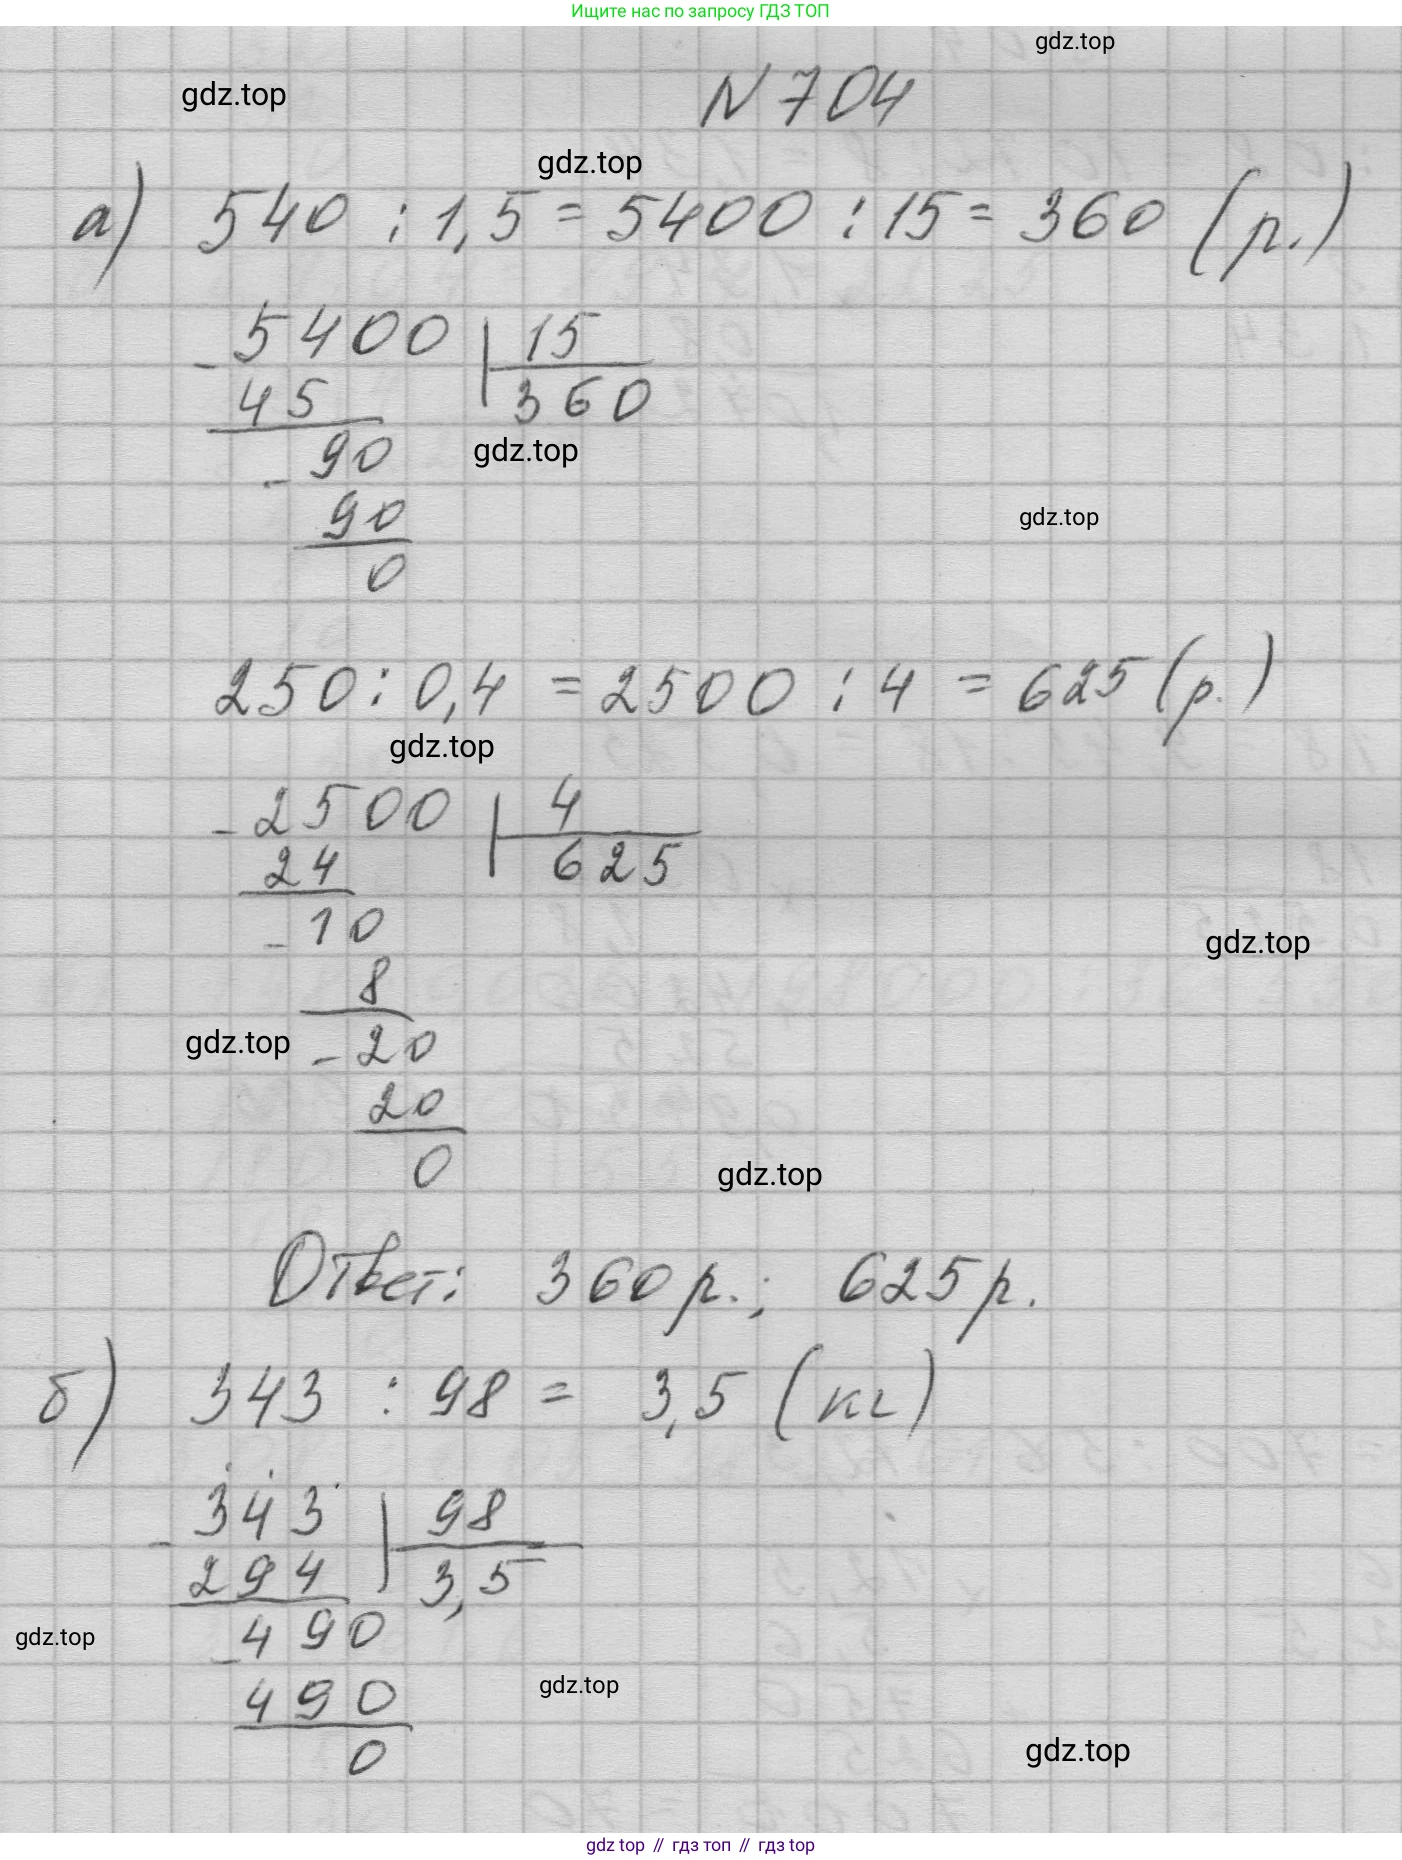 Ищите нас по запросу ГДЗ ТОП
gdz.top
gdz.top
N 704
gdz.top
а) 540 : 1,5 = 5400 : 15 = 360 (р.)
- 5400 | 15
45 360
gdz.top
- 90
gdz.top
90
0
250 : 0,4 = 2500 : 4 = 625 (р.)
gdz.top
- 2500 | 4
24 625
- 10
gdz.top
8
gdz.top
- 20
20
0
gdz.top
Ответ: 360 р.; 625 р.
б) 343 : 98 = 3,5 (кг)
- 343 | 98
294 3,5
gdz.top
- 490
gdz.top
490
gdz.top
0
gdz.top // гдз топ // гдз top